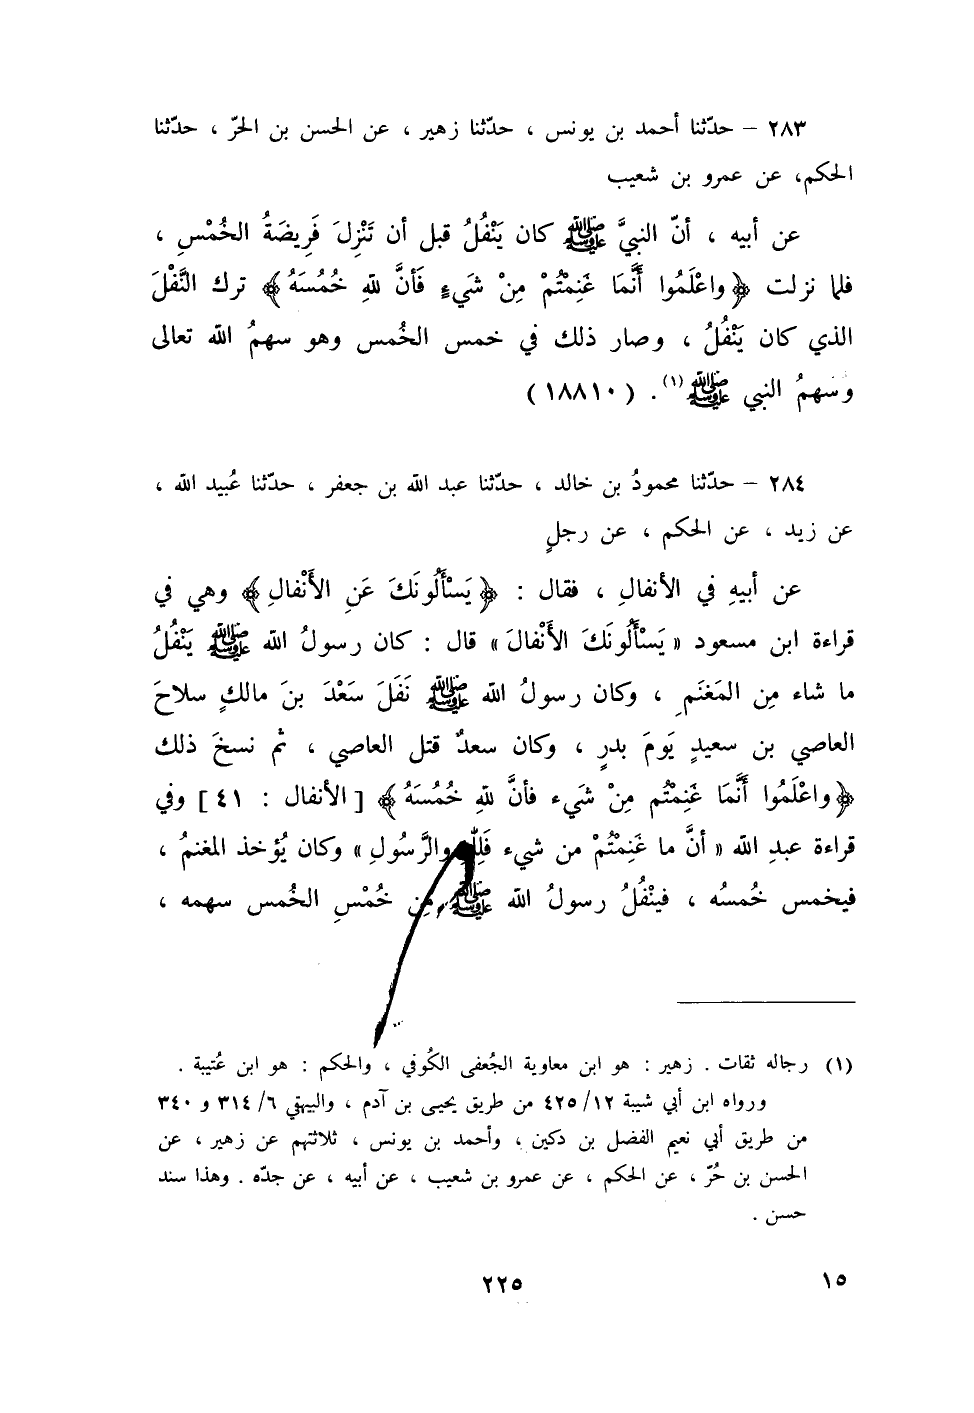 ٢٨٣ – حدّثنا أحمد بن يونس ، حدّثنا زهير ، عن الحسن بن الحرّ ، حدّثنا
الحكم، عن عمرو بن شعيب
عن أبيه ، أنّ النبيَّ ﷺ كان يَنْفُلُ قبل أن تَنْزِلَ فَرِيضَةُ الخُمْسِ ،
فلما نزلت ﴿واعْلَمُوا أَنَّمَا غَنِمْتُمْ مِنْ شَيءٍ فَأَنَّ للهِ خُمُسَهُ﴾ ترك النَّفْلَ
الذي كان يَنْفُلُ ، وصار ذلك في خمس الخُمس وهو سهمُ الله تعالى
وَسَهمُ النبي ﷺ(١). (١٨٨١٠)
٢٨٤ – حدّثنا محمودُ بن خالد ، حدّثنا عبد الله بن جعفر ، حدّثنا عُبيد الله ،
عن زيد ، عن الحكم ، عن رجلٍ
عن أبيهِ في الأنفالِ ، فقال : ﴿يَسْأَلُونَكَ عَنِ الأَنْفالِ﴾ وهي في
قراءة ابن مسعود «يَسْأَلُونَكَ الأَنْفالَ» قال : كان رسولُ الله ﷺ يَنْفُلُ
ما شاء مِن المَغنَمِ ، وكان رسولُ الله ﷺ نَفَلَ سَعْدَ بنَ مالكٍ سلاحَ
العاصي بن سعيدٍ يَومَ بدرٍ ، وكان سعدٌ قتل العاصي ، ثم نسخَ ذلك
﴿واعْلَمُوا أَنَّمَا غَنِمْتُم مِنْ شَيء فأنَّ للهِ خُمُسَهُ﴾ [الأنفال : ٤١] وفي
قراءة عبدِ الله «أنَّ ما غَنِمْتُمْ من شيء فَلِلّهِ والرَّسُولِ» وكان يُؤخذ المغنمُ ،
فيخمس خُمسُه ، فينْفُلُ رسولُ الله ﷺ مِن خُمْسِ الخُمس سهمه ،
(١) رجاله ثقات . زهير : هو ابن معاوية الجُعفى الكُوفي ، والحكم : هو ابن عُتيبة .
ورواه ابن أبي شيبة ٤٢٥/١٢ من طريق يحيى بن آدم ، والبيهقي ٣١٤/٦ و ٣٤٠
من طريق أبي نعيم الفضل بن دكين ، وأحمد بن يونس ، ثلاثتهم عن زهير ، عن
الحسن بن حُرّ ، عن الحكم ، عن عمرو بن شعيب ، عن أبيه ، عن جدّه . وهذا سند
حسن .
١٥
٢٢٥